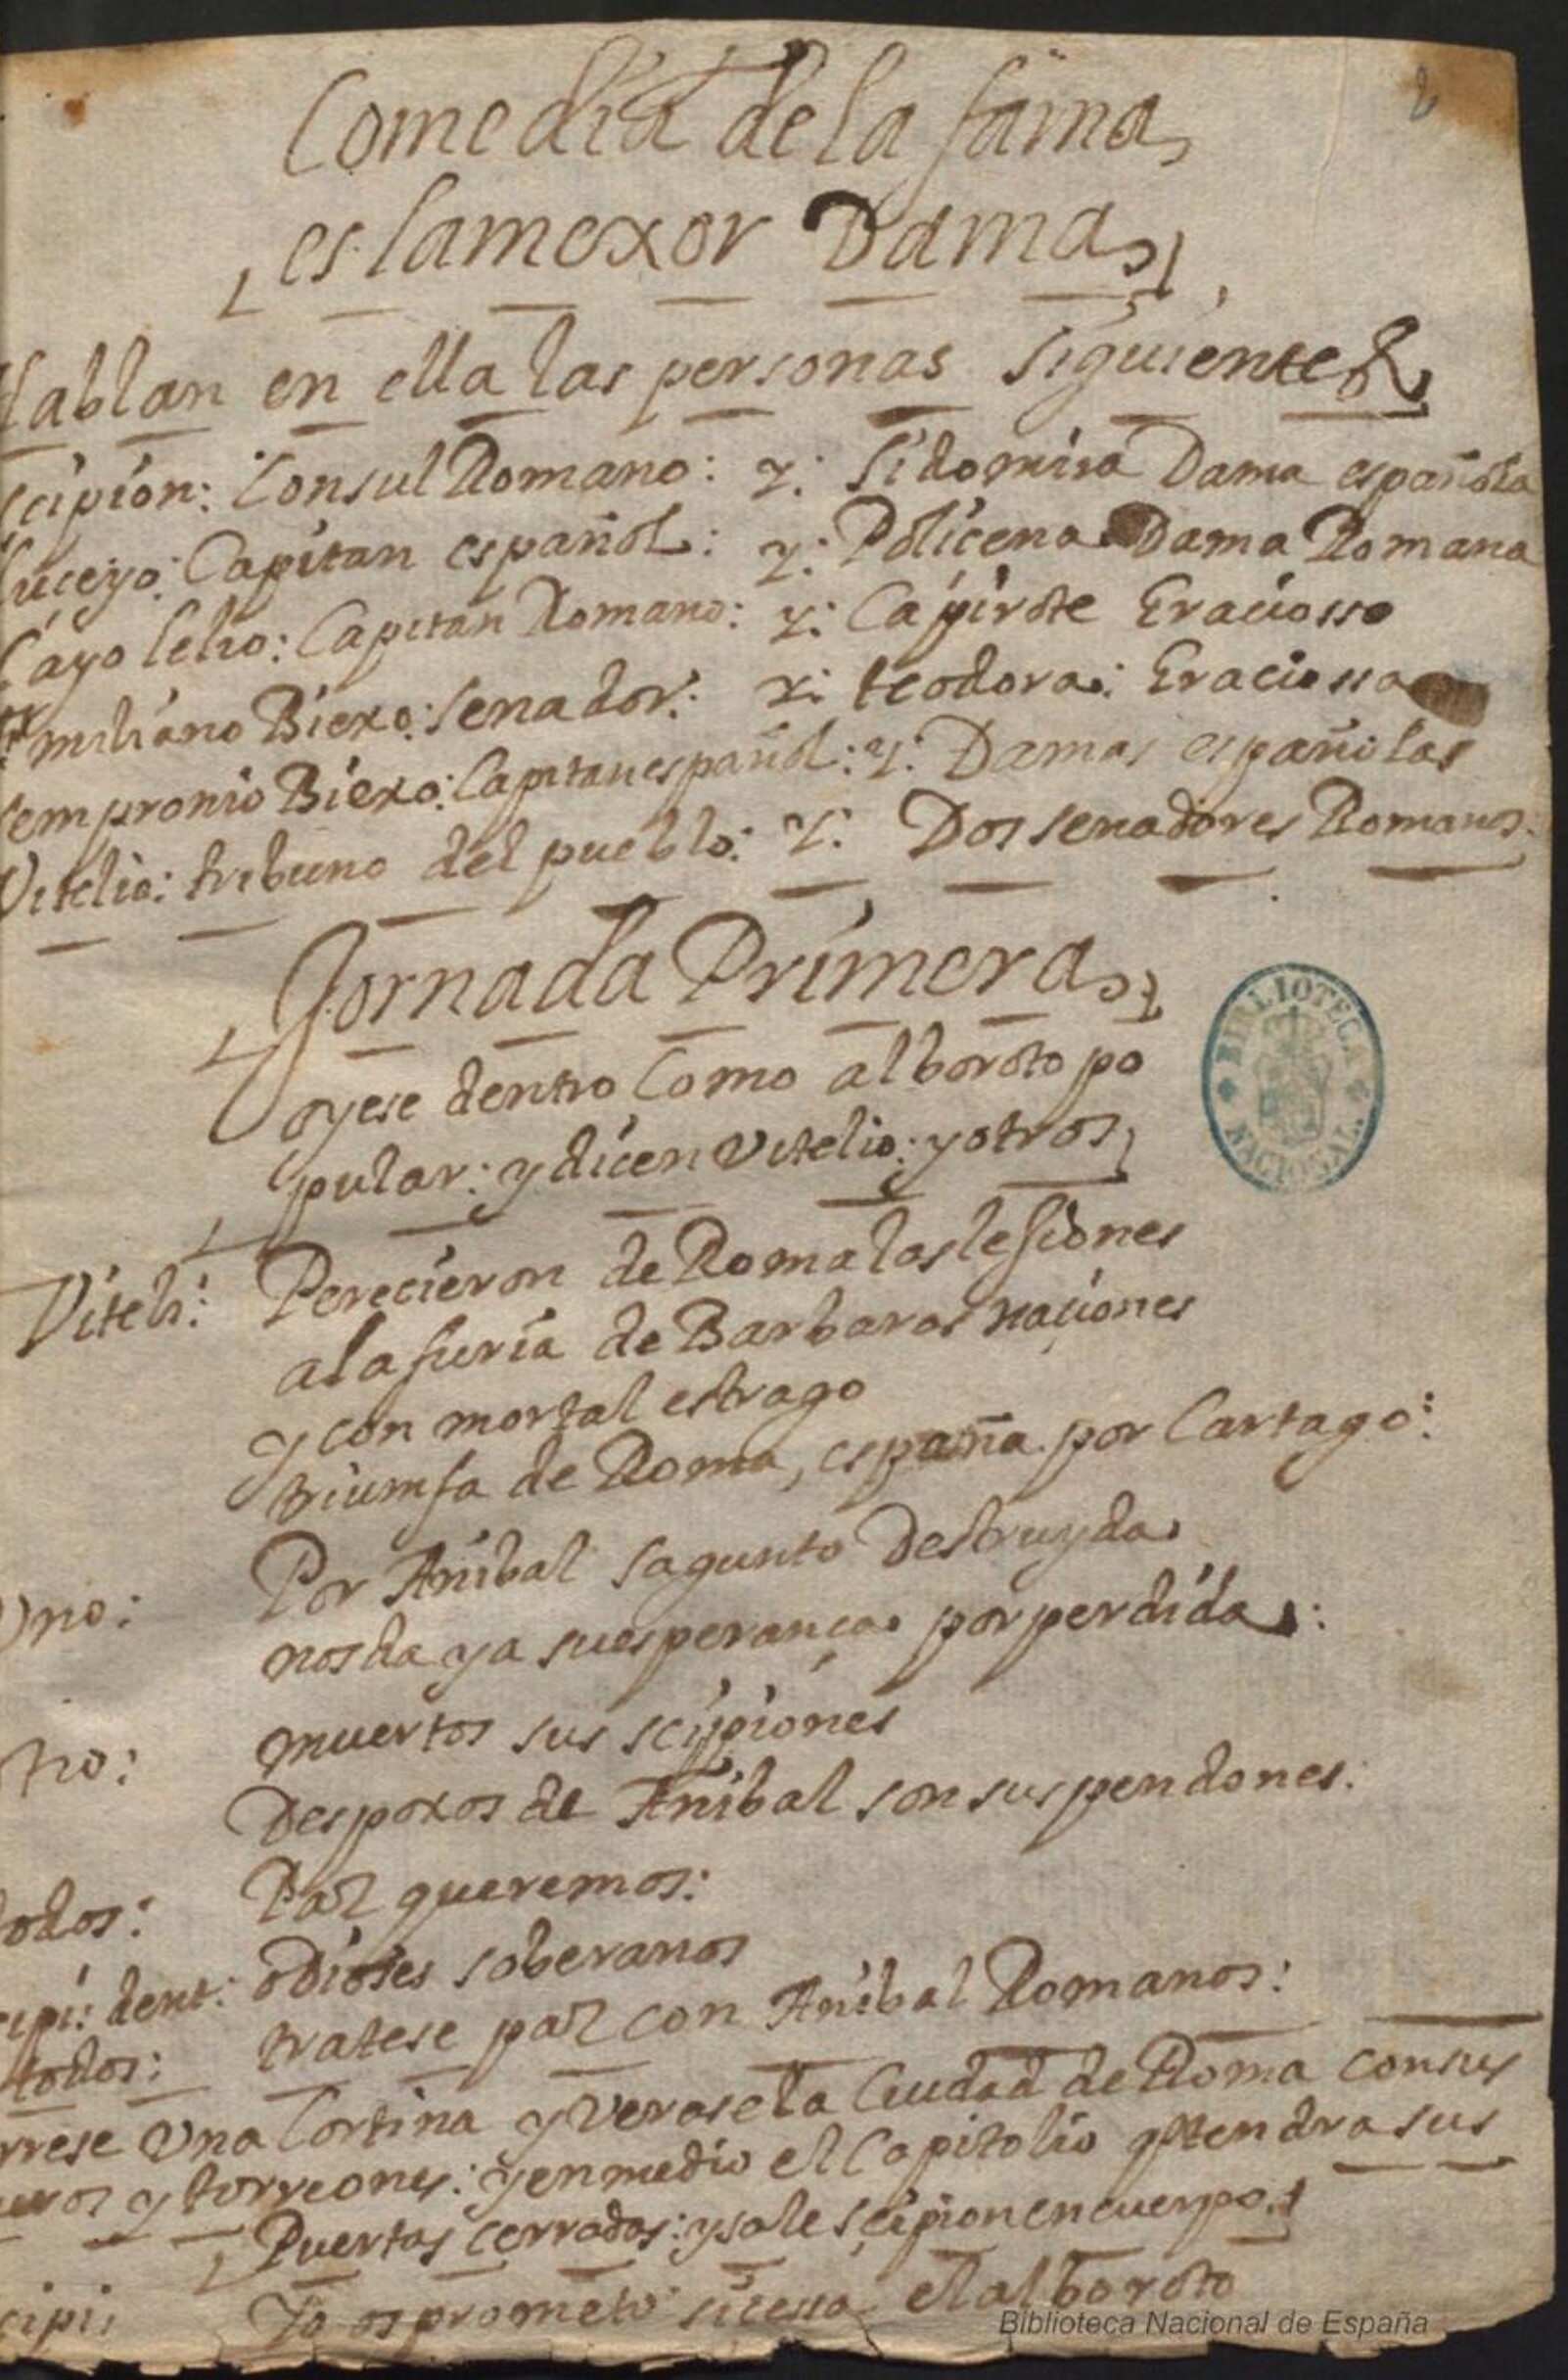 2
Comedia de la fama,
es lamexor Dama,
Hablan en ella las personas siguientes,
scipion: Consul Romano: y: Sidomira Dama española
Luceyo: Capitan español: y: Policena Dama Romana
Cayo lelio: Capitan Romano: y: Capirote Graciosso
emiliano Biexo: senador: y: teodora: Graciossa
sempronio Biexo: Capitan español: y: Damas españolas
Vitelio: tribuno del pueblo: y: Dos senadores Romanos.
Jornada Primera,
oyese dentro Como alboroto po
pular: y dicen Vitelio: y otros,
Viteli: Perecieron de Roma las lesiones
ala furia de Barbaras naciones
y con mortal estrago
triumfa de Roma, españa por Cartago:
Vno: Por Anibal sagunto Destruyda
nos da ya su esperança por perdida:
otro: muertos sus scipiones
Despoxos de Anibal son sus pendones:
todos: Paz queremos:
scipi: dent: o Dioses soberanos
todos: tratese paz con Anibal Romanos:
Correse Vna Cortina y Verase la Ciudad de Roma con sus
muros y torreones: y en medio el Capitolio q tendra sus
Puertas cerradas: y sale scipion en cuerpo.
scipi: Yo os prometo sicessa el alboroto
BIBLIOTECA NACIONAL
Biblioteca Nacional de España